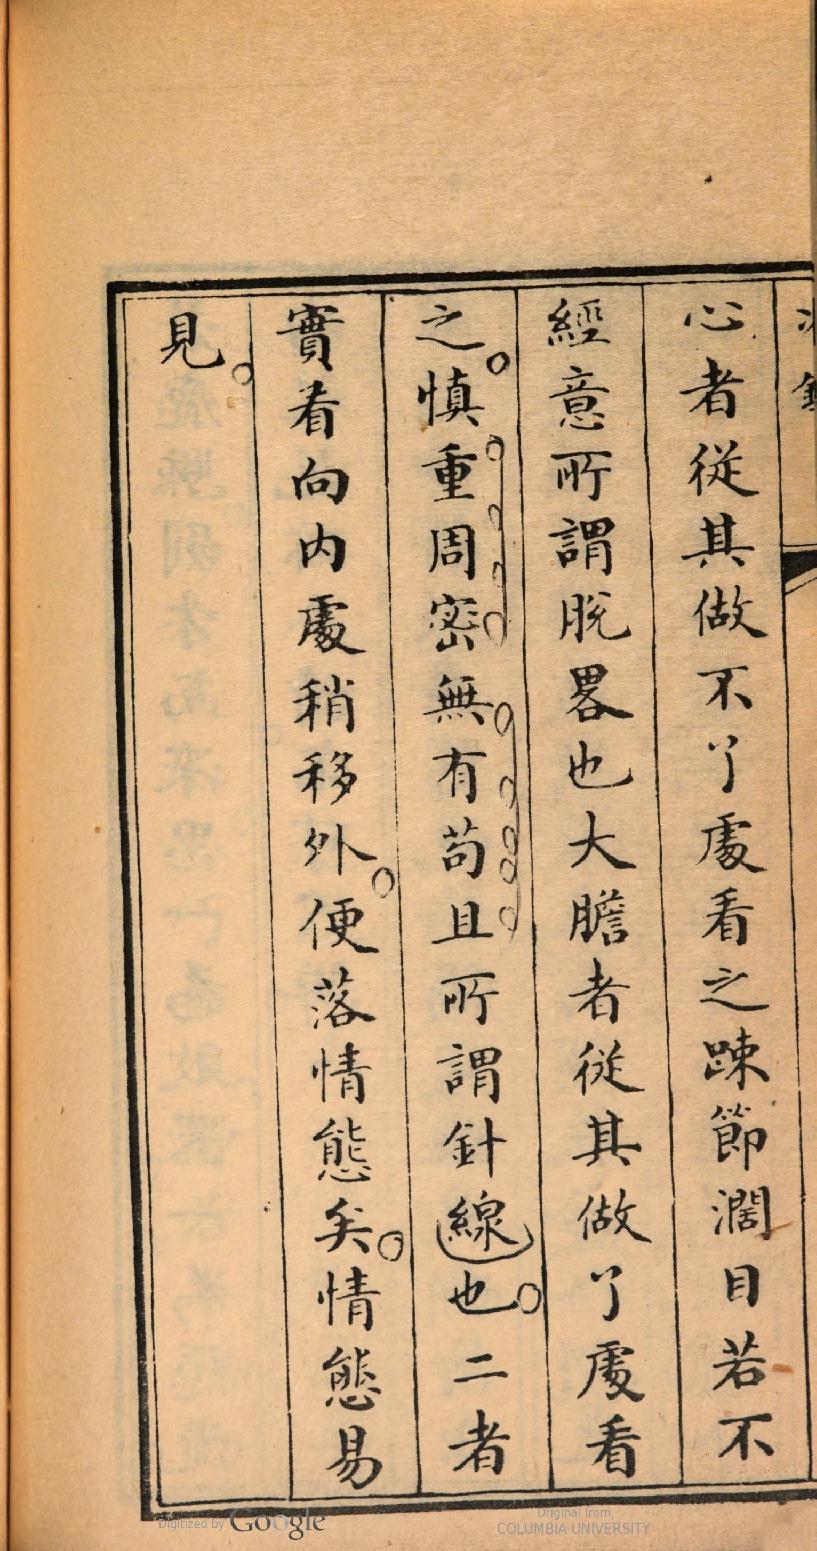 心者從其做不了處看之疎節濶目若不
經意所謂脫畧也大膽者從其做了處看
之慎重周密無有苟且所謂針線也二者
實看向内處稍移外便落情態矣情態易
見
Digitized by Google
Original from
COLUMBIA UNIVERSITY